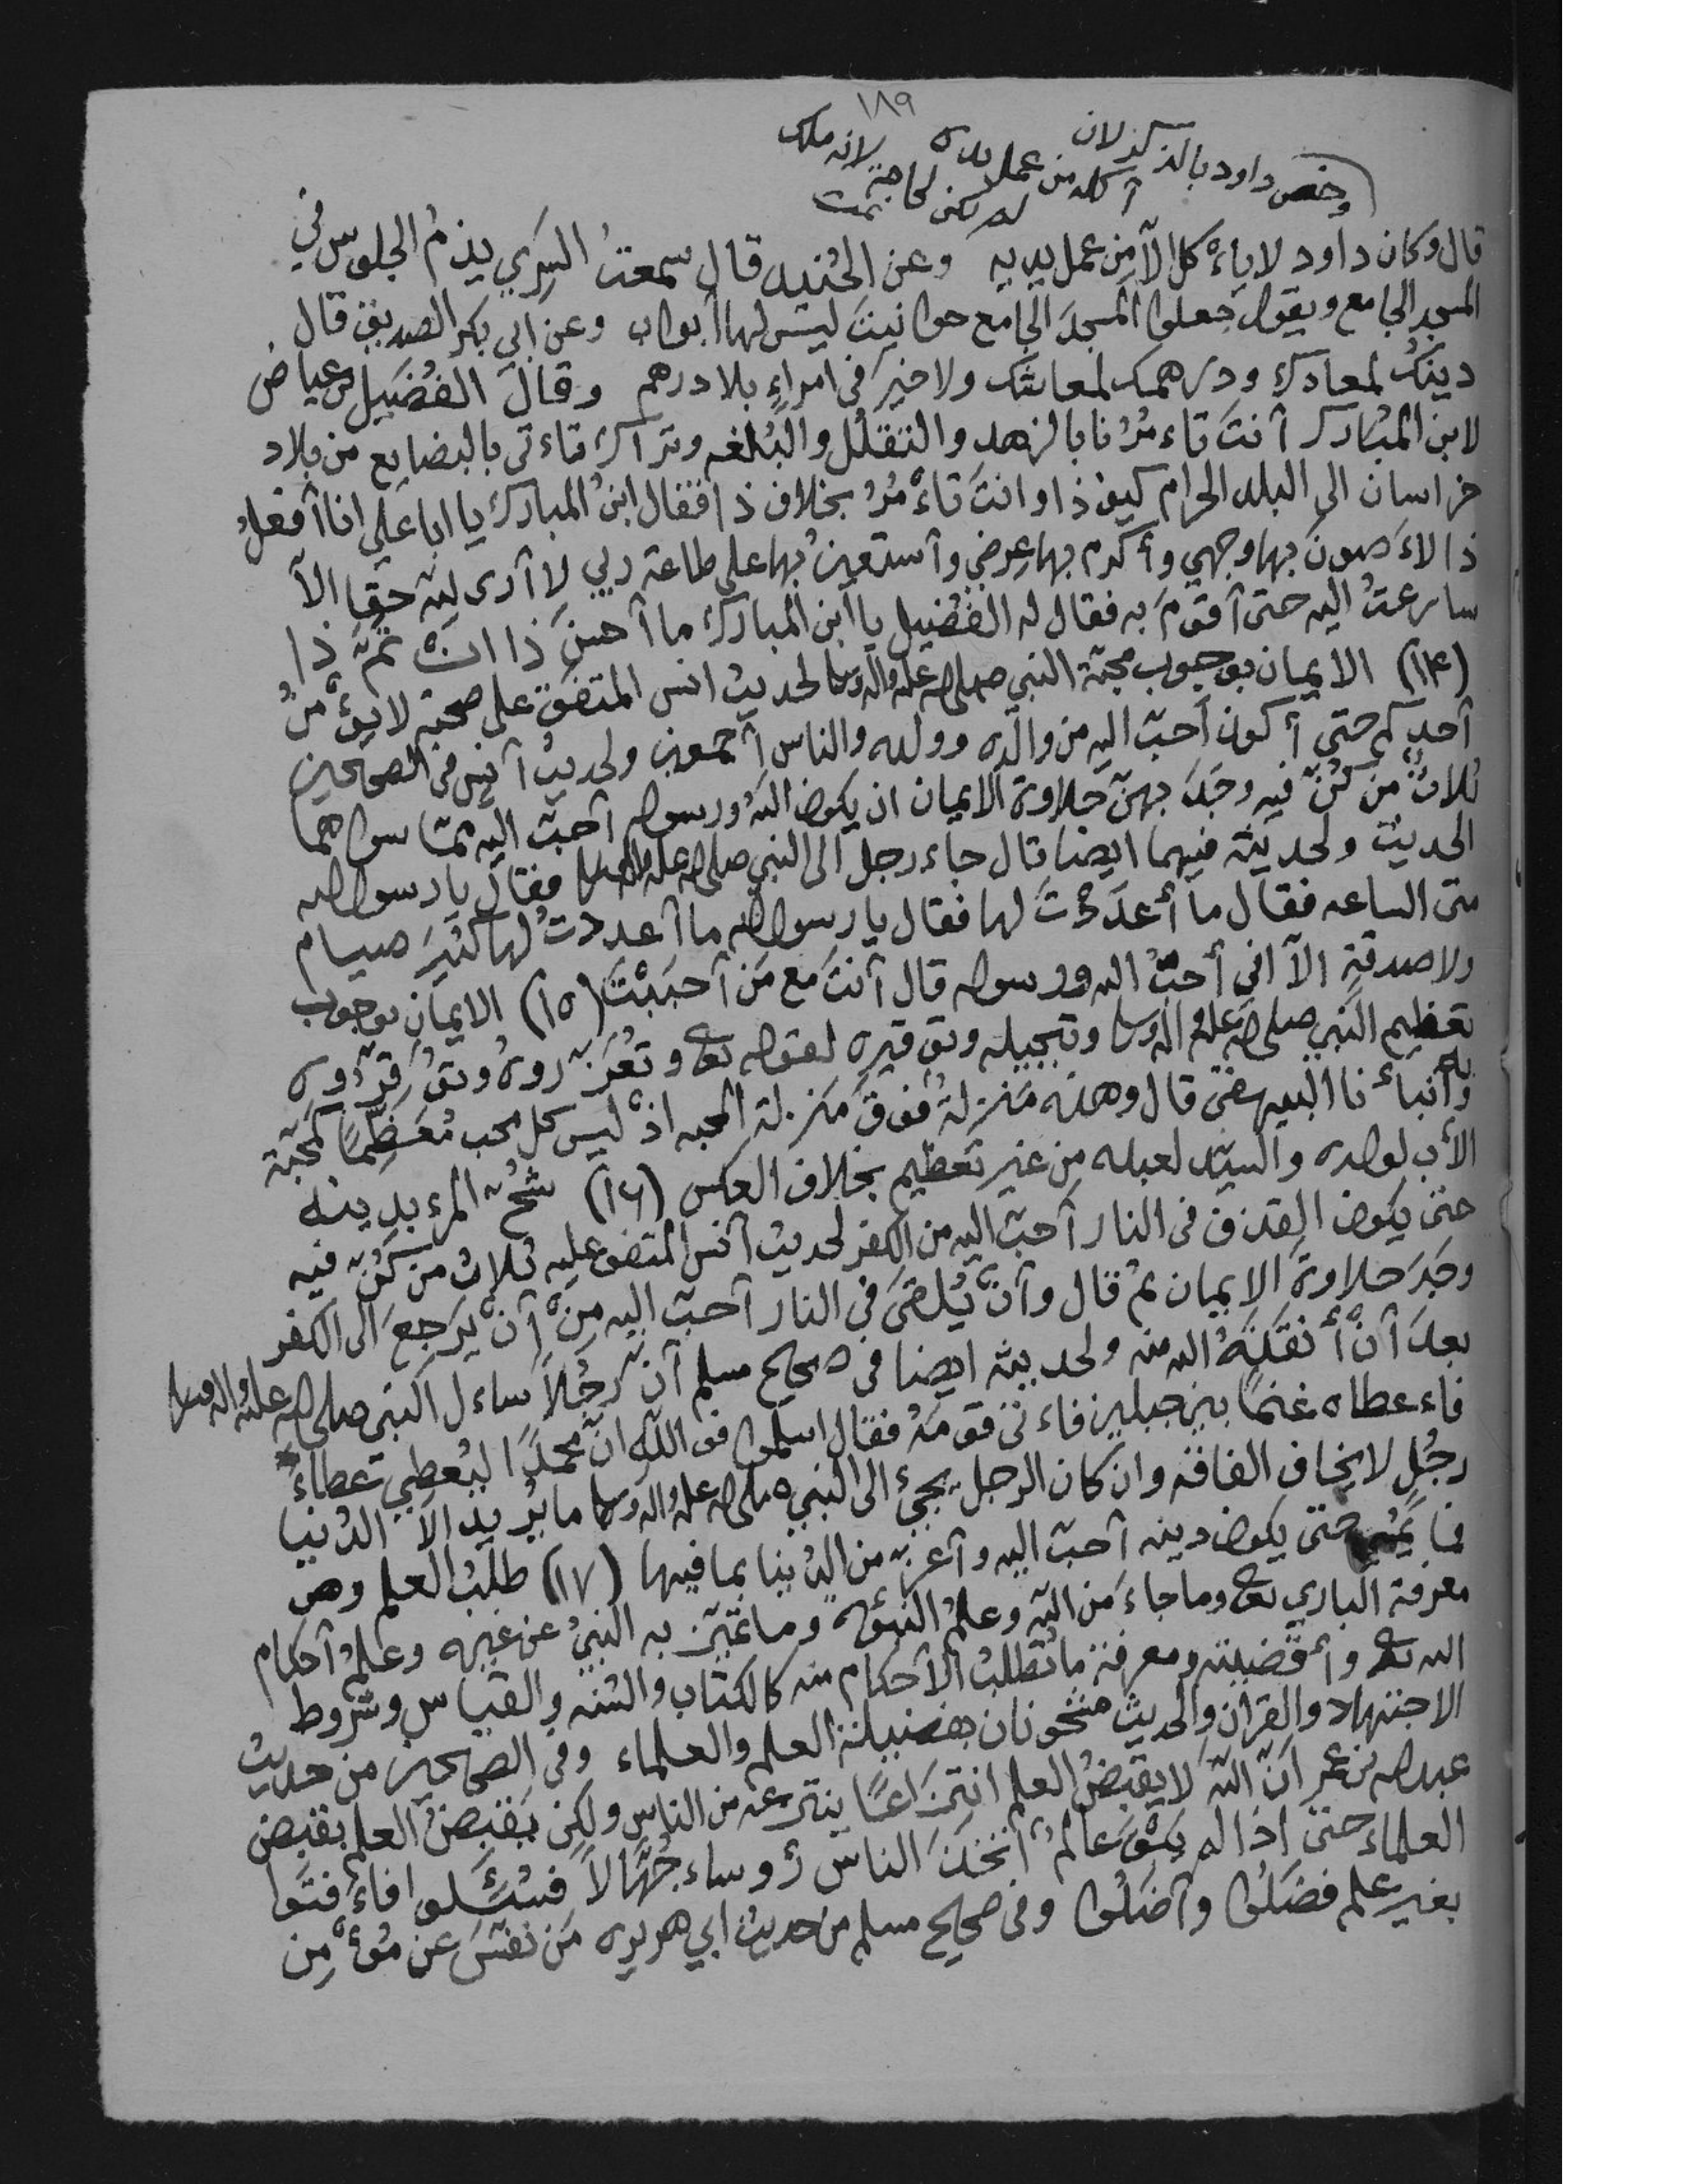 ١٨٩
وخص داود بالذكر لان
أكله من عمل يده
لم يكن لحاجة لانه ملك
تمت
قال وكان داود لا ياءكل الآ من عمل يديه وعن الجُنيد قال سمعتُ السَري يذمُ الجلوس في
المسجد الجامع ويقول جعلوا المسجدَ الجامع حوانيتَ ليسَ لها أبواب وعن ابي بكر الصديق قال
دينُك لمعادك ودرهمك لمعاشك ولا خيرَ في امراءٍ بلا درهم وقال الفُضَيل بن عياض
لابن المُبَارك أنتَ تاءمرُنا بالزهد والتقلُل والبُلغه ونراك تاءتي بالبضايع من بلاد
خراسان الى البلد الحرام كيف ذا وانتَ تاءْمُرُ بخلاف ذا فقال ابنُ المبارك يا ابا علي انا أفعلُ
ذا لاءَصونَ بها وجهي وأكرم بها عِرضي وأستعينُ بها على طاعة ربي لا أرى للهِ حقا الآ
سارعتُ اليه حتى أقومَ به فقال له الفُضَيل يا ابن المبارك ما أحسنَ ذا ان تمَّ ذا
(١٤) الايمان بوجوب محبّة النبي صلى الله عليه واله وسلم لحديث انس المتفق على صحته لا يؤْمنُ
أحدكم حتى أكون أحبّ اليه من والده وولده والناس أجمعين ولحديث أنس في الصحيحين
ثلاثٌ مَن كُنّ فيه وجَدَ بهنّ حلاوة الايمان ان يكون اللهُ ورسوله أحبّ اليه ممّا سواهما
الحديث ولحديثه فيهما ايضا قال جاء رجل الى النبي صلى الله عليه واله وسلم فقال يا رسول الله
متى الساعه فقال ما أعدَدْتَ لها فقال يا رسول الله ما أعددتُ لها كثيرَ صيام
ولا صدقةٍ الآ اني أُحبُّ الله ورسوله قال أنتَ مع مَن أحبَبْتَ (١٥) الايمان بوجوب
تعظيم النبي صلى الله عليه واله وسلم وتبجيله وتوقيره لقوله تع وتُعَزّروهُ وتوُقّروه
وأنباءنا البيهقي قال وهذه مَنزلةٌ فوقَ مَنزلة المحبه اذْ ليس كل محب مُعَظِّمًا كمحبّة
الأب لولده والسيّد لعبده مِن غير تعظيم بخلاف العكس (١٦) شُحُ المرء بدينه
حتى يكون القذف في النار أحبّ اليه من الكفر لحديث أنس المتفق عليه ثلاث من كُنّ فيه
وجَدَ حلاوةَ الايمان ثم قال وأنْ يُلقىَ في النار أحبّ اليه مِنْ أنْ يَرجعَ الى الكفر
بعدَ أنْ أنقذَهُ الله منه ولحديثه ايضا في صحيح مسلم أنّ رجُلًا ساءل النبي صلى الله عليه واله وسلم
فاءعطاه غنمًا بين جبلين فاءتى قومَهُ فقال اسلموا فو الله انّ محمدًا ليُعطي عطاءَ
رجُلٍ لا يخاف الفاقه وان كان الرجل يجيئ الى النبي صلى الله عليه واله وسلم ما يُريد الآ الدُنيا
فما يُمْسي حتى يكون دينه أحبّ اليه وأعزّ من الدُنيا بما فيها (١٧) طلبُ العلم وهو
معرفة الباري تع وما جاءَ من اللهِ وعلمُ النبوّه وما تميّز به النبيُ عن غيره وعلمُ أحكام
الله تع وأقضيته ومعرفة ما تُطلبُ الأحكام منه كالكتاب والسُنه والقياس وشروط
الاجتهاد والقران والحديث مشحونان بفضيلة العلم والعلماء وفي الصحيحين من حديث
عبدالله بن عمر انّ اللهَ لا يقبضُ العلم انتزاعًا ينتزعه من الناس ولكن يَقبضُ العلم بقبض
العلماء حتى اذا لم يَبْقَ عالمٌ اتخذَ الناس رؤوساء جُهّالًا فسُئلوا فاءفتَوا
بغير علم فضَلُوا وأضَلُوا وفي صحيح مسلم من حديث ابي هريره مَن نفّسَ عن مُؤْمِن